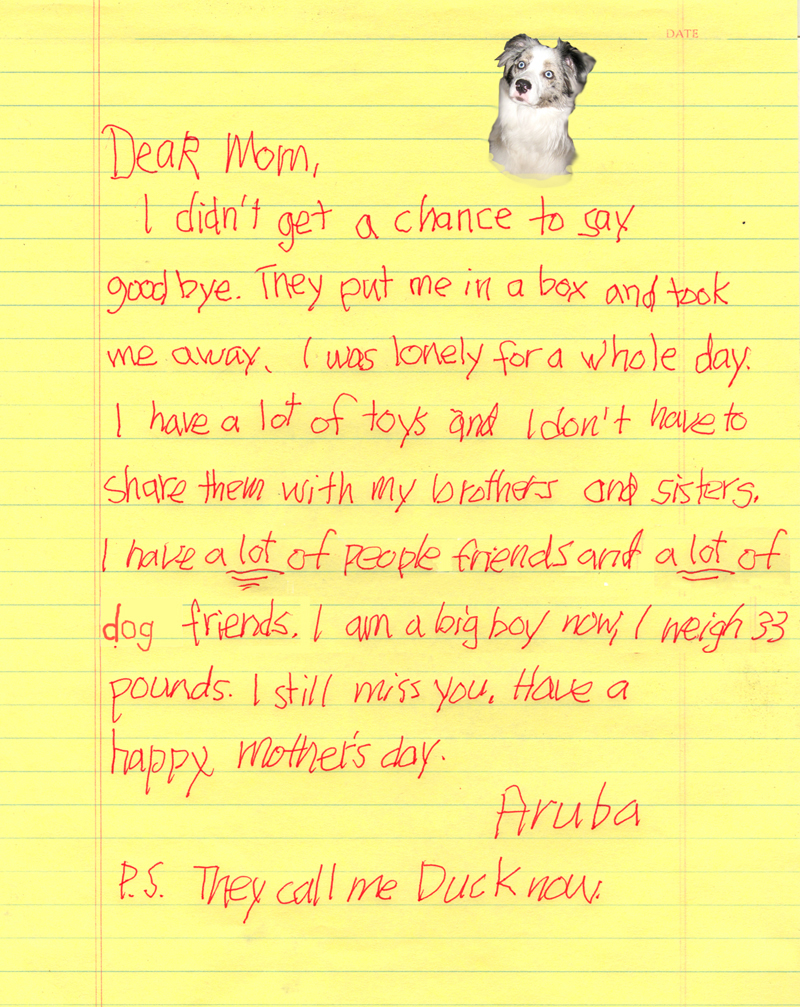 DATE
Dear Mom,
I didn't get a chance to say
good bye. They put me in a box and took
me away. I was lonely for a whole day.
I have a lot of toys and I don't have to
share them with my brothers and sisters.
I have a lot of people friends and a lot of
dog friends. I am a big boy now, I weigh 33
pounds. I still miss you. Have a
happy Mother's day.
Aruba
P.S. They call me Duck now.